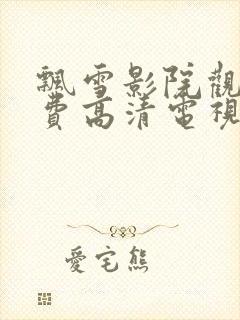 飄雪影院觀
費高清電視
愛宅熊